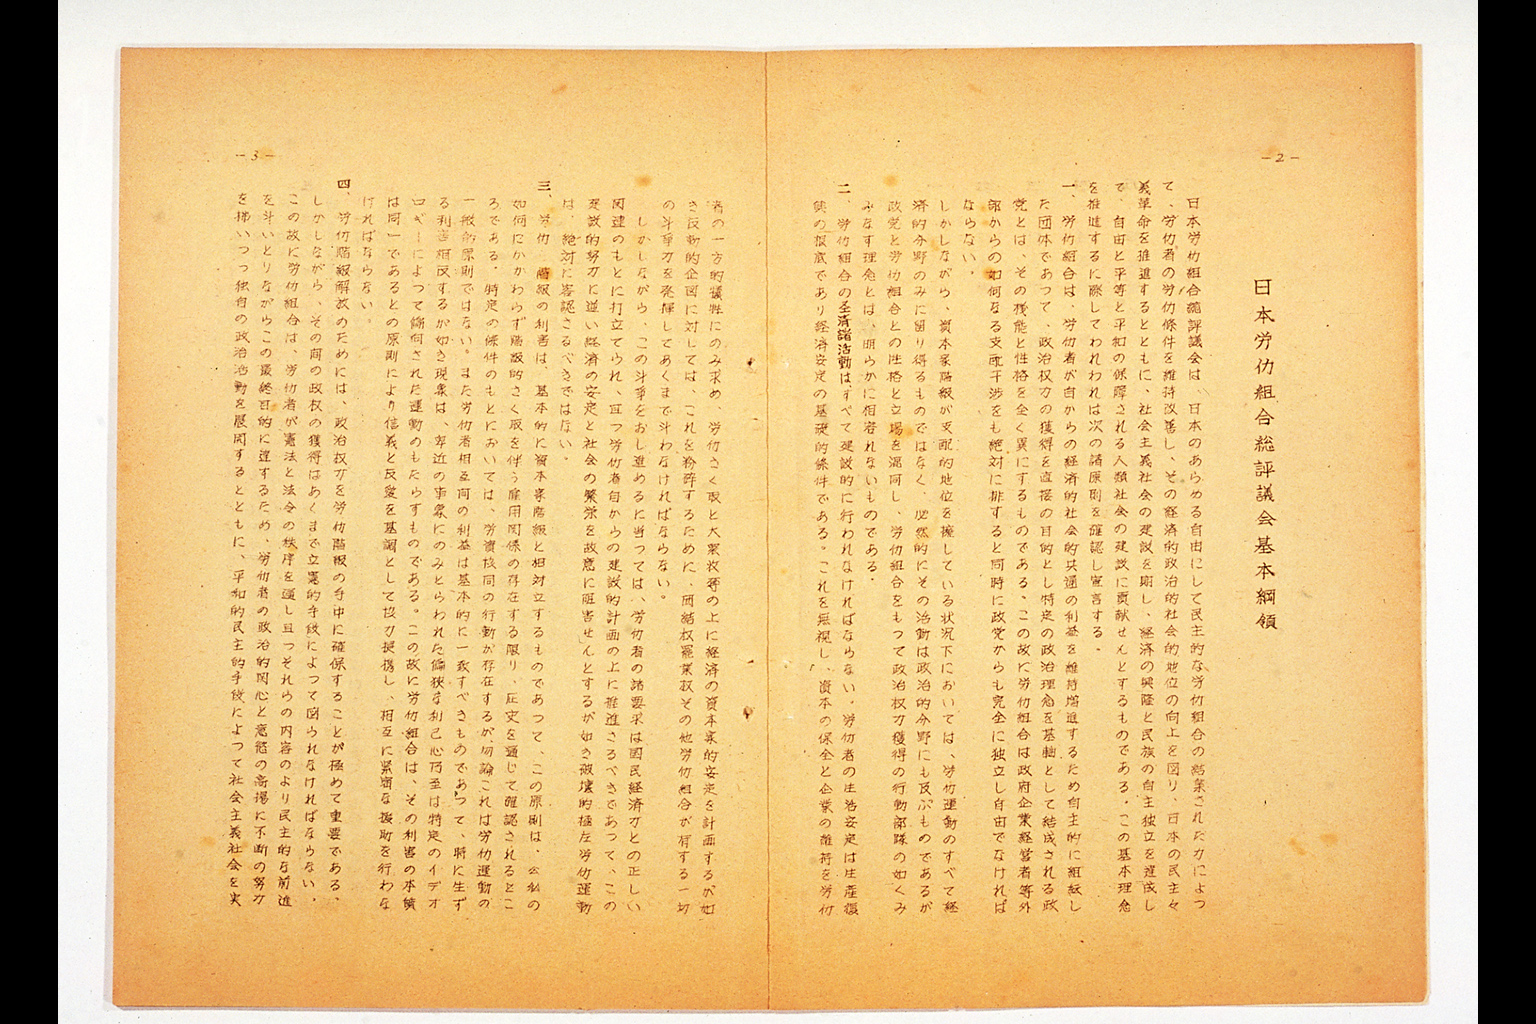 -2-
日本労仂組合総評議会基本綱領
日本労仂組合総評議会は、日本のあらゆる自由にして民主的な労仂組合の結集された力によつ
て、労仂者の労仂條件を維持改善し、その経済的政治的社会的地位の向上を図り、日本の民主々
義革命を推進するとともに、社会主義社会の建設を期し、経済の興隆と民族の自主独立を達成し
て、自由と平等と平和の保障される人類社会の建設に貢献せんとするものである。この基本理念
を推進するに際してわれわれは次の諸原則を確認し宣言する。
一、労仂組合は、労仂者が自からの経済的社会的共通の利益を維持増進するため自主的に組織し
た団体であつて、政治权力の獲得を直接の目的とし特定の政治理念を基軸として結成される政
党とは、その機能と性格を全く異にするものである。この故に労仂組合は政府企業経営者等外
部からの如何なる支配干渉をも絶対に排すると同時に政党からも完全に独立し自由でなければ
ならない。
しかしながら、資本家階級が支配的地位を擁している状況下においては、労仂運動のすべて経
済的分野のみに留り得るものではなく、必然的にその活動は政治的分野にも及ぶものであるが
政党と労仂組合との性格と立場を混同し、労仂組合をもつて政治权力獲得の行動部隊の如くみ
なす理念とは、明らかに相容れないものである。
二、労仂組合の圣済諸活動は、すべて建設的に行われなければならない。労仂者の生活安定は生産復
興の根底であり経済安定の基礎的條件である。これを無視し、資本の保全と企業の維持を労仂
-3-
者の一方的犠牲にのみ求め、労仂さく取と大衆收奪の上に経済の資本家的安定を計画するが如
き反動的企図に対しては、これを粉砕するために、団結权罷業权その他労仂組合が有する一切
の斗争力を発揮してあくまで斗わなければならない。
しかしながら、この斗争をおし進めるに当つては、労仂者の諸要求は国民経済力との正しい
関連のもとに打立てられ、且つ労仂者自からの建設的計画の上に推進さるべきであつて、この
建設的努力に逆い経済の安定と社会の繁栄を故意に阻害せんとするが如き破壊的極左労仂運動
は、絶対に容認さるべきではない。
三、労仂階級の利害は、基本的に資本家階級と相対立するものであつて、この原則は、公私の
如何にかかわらず階級的さく取を伴う雇用関係の存在する限り、歴史を通じて確認されるとこ
ろである。特定の條件のもとにおいては、労資協同の行動が存在するが、勿論これは労仂運動の
一般的原則ではない。また労仂者相互间の利益は基本的に一致すべきものであつて、時に生ず
る利害相反するが如き現象は、卑近の事象にのみとらわれた偏狭な利己心乃至は特定のイデオ
ロギーによつて偏向された運動のもたらすものである。この故に労仂組合は、その利害の本質
は同一であるとの原則により信義と反愛を基調として協力提携し、相互に緊密な援助を行わな
ければならない。
四、労仂階級解放のためには、政治权力を労仂階級の手中に確保することが極めて重要である。
しかしながら、その间の政权の獲得はあくまで立憲的手段によつて図られなければならない。
この故に労仂組合は、労仂者が憲法と法令の秩序を通し且つそれらの内容のより民主的な前進
を斗いとりながらこの最終目的に達するため、労仂者の政治的関心と意慾の高揚に不断の努力
を拂いつつ独自の政治活動を展開するとともに、平和的民主的手段によつて社会主義社会を実